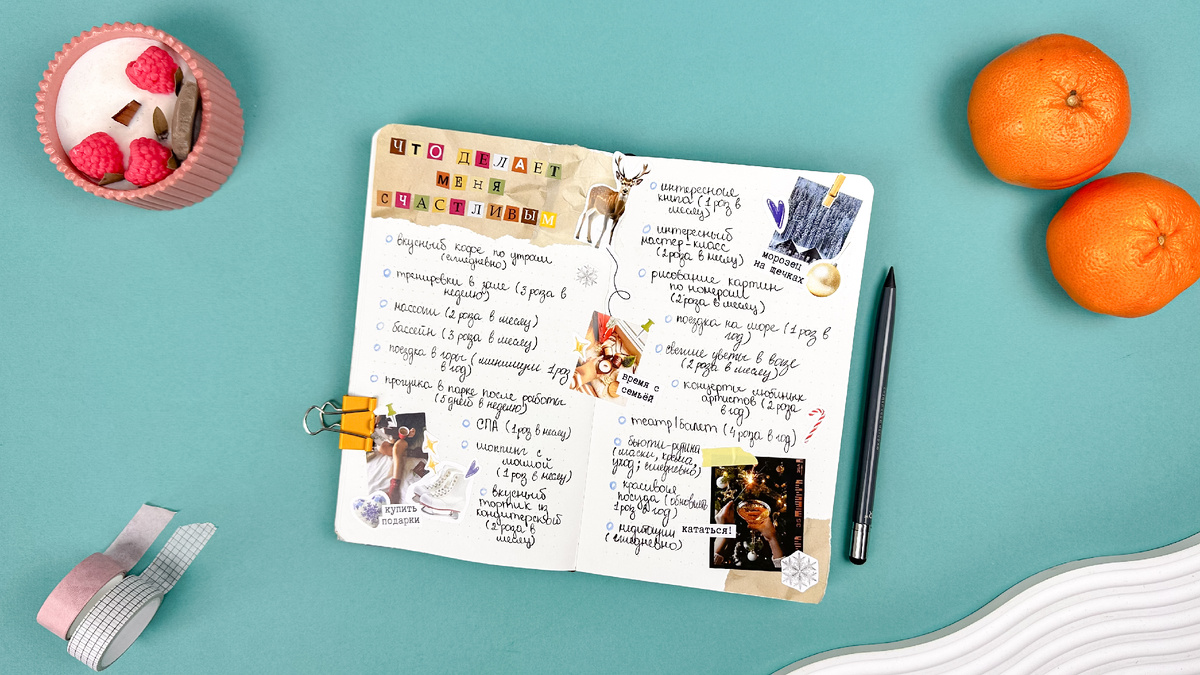 ЧТО ДЕЛАЕТ
МЕНЯ
СЧАСТЛИВЫМ
вкусный кофе по утрам
(ежедневно)
тренировки в зале (3 раза в
неделю)
массаж (2 раза в месяц)
бассейн (3 раза в месяц)
поездка в горы (минимум 1 раз
в год)
прогулка в парке после работы
(5 дней в неделю)
СПА (1 раз в месяц)
шоппинг с
мамой
(1 раз в месяц)
вкусный
тортик из
кондитерской
(2 раза в
месяц)
купить
подарки
время с
семьёй
интересная
книга (1 раз в
месяц)
интересный
мастер-класс
(2 раза в месяц)
рисование картин
по номерам
(2 раза в месяц)
поездка на море (1 раз в
год)
свежие цветы в вазе
(2 раза в месяц)
концерты любимых
артистов (2 раза
в год)
театр/балет (4 раза в год)
бьюти-рутина
(маски, крема,
уход; ежедневно)
красивая
посуда (обновить
1 раз в год)
медитации
(ежедневно)
морозец
на щечках
кататься!